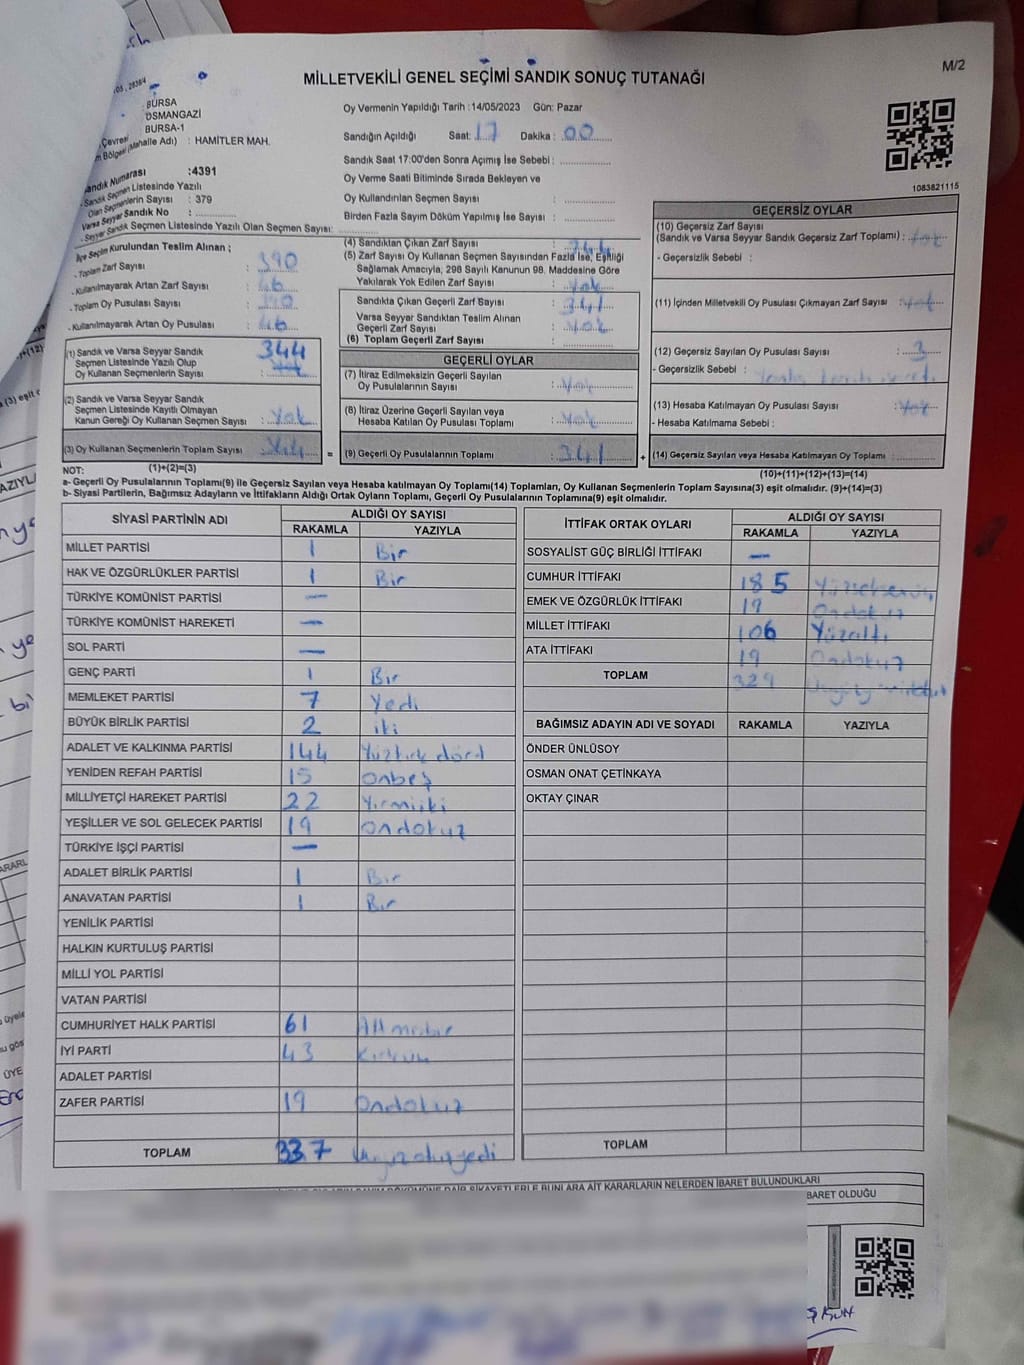 M/2
MİLLETVEKİLİ GENEL SEÇİMİ SANDIK SONUÇ TUTANAĞI
: BURSA
OSMANGAZİ
BURSA-1
Bölgesi (Mahalle Adı) : HAMİTLER MAH.
Sandık Numarası : 4391
Sandık Seçmen Listesinde Yazılı
Olan Seçmenlerin Sayısı : 379
Varsa Seyyar Sandık No :
Seyyar Sandık Seçmen Listesinde Yazılı Olan Seçmen Sayısı:
Oy Vermenin Yapıldığı Tarih :14/05/2023 Gün: Pazar
Sandığın Açıldığı Saat: 17 Dakika : 00
Sandık Saat 17:00'den Sonra Açımış İse Sebebi :
Oy Verme Saati Bitiminde Sırada Bekleyen ve
Oy Kullandırılan Seçmen Sayısı :
Birden Fazla Sayım Döküm Yapılmış İse Sayısı :
1083821115
İlçe Seçim Kurulundan Teslim Alınan ;
- Toplam Zarf Sayısı : 390
- Kullanılmayarak Artan Zarf Sayısı : 46
- Toplam Oy Pusulası Sayısı : 390
- Kullanılmayarak Artan Oy Pusulası : 46
(1) Sandık ve Varsa Seyyar Sandık
Seçmen Listesinde Yazılı Olup
Oy Kullanan Seçmenlerin Sayısı : 344
(2) Sandık ve Varsa Seyyar Sandık
Seçmen Listesinde Kayıtlı Olmayan
Kanun Gereği Oy Kullanan Seçmen Sayısı : Yok
(3) Oy Kullanan Seçmenlerin Toplam Sayısı : 344
(4) Sandıktan Çıkan Zarf Sayısı : 344
(5) Zarf Sayısı Oy Kullanan Seçmen Sayısından Fazla İse, Eşitliği
Sağlamak Amacıyla, 298 Sayılı Kanunun 98. Maddesine Göre
Yakılarak Yok Edilen Zarf Sayısı : Yok
Sandıkta Çıkan Geçerli Zarf Sayısı : 341
Varsa Seyyar Sandıktan Teslim Alınan
Geçerli Zarf Sayısı : Yok
(6) Toplam Geçerli Zarf Sayısı :
GEÇERLİ OYLAR
(7) İtiraz Edilmeksizin Geçerli Sayılan
Oy Pusulalarının Sayısı : Yok
(8) İtiraz Üzerine Geçerli Sayılan veya
Hesaba Katılan Oy Pusulası Toplamı : Yok
(9) Geçerli Oy Pusulalarının Toplamı : 341
GEÇERSİZ OYLAR
(10) Geçersiz Zarf Sayısı
(Sandık ve Varsa Seyyar Sandık Geçersiz Zarf Toplamı) : Yok
- Geçersizlik Sebebi :
(11) İçinden Milletvekili Oy Pusulası Çıkmayan Zarf Sayısı : Yok
(12) Geçersiz Sayılan Oy Pusulası Sayısı : 3
- Geçersizlik Sebebi :
(13) Hesaba Katılmayan Oy Pusulası Sayısı : Yok
- Hesaba Katılmama Sebebi :
(14) Geçersiz Sayılan veya Hesaba Katılmayan Oy Toplamı :
NOT: (1)+(2)=(3) (10)+(11)+(12)+(13)=(14)
a- Geçerli Oy Pusulalarının Toplamı(9) ile Geçersiz Sayılan veya Hesaba katılmayan Oy Toplamı(14) Toplamları, Oy Kullanan Seçmenlerin Toplam Sayısına(3) eşit olmalıdır. (9)+(14)=(3)
b- Siyasi Partilerin, Bağımsız Adayların ve İttifakların Aldığı Ortak Oyların Toplamı, Geçerli Oy Pusulalarının Toplamına(9) eşit olmalıdır.
SİYASİ PARTİNİN ADI ALDIĞI OY SAYISI
RAKAMLA YAZIYLA
MİLLET PARTİSİ 1 Bir
HAK VE ÖZGÜRLÜKLER PARTİSİ 1 Bir
TÜRKİYE KOMÜNİST PARTİSİ —
TÜRKİYE KOMÜNİST HAREKETİ —
SOL PARTİ —
GENÇ PARTİ 1 Bir
MEMLEKET PARTİSİ 7 Yedi
BÜYÜK BİRLİK PARTİSİ 2 iki
ADALET VE KALKINMA PARTİSİ 144 Yüzkırk dörd
YENİDEN REFAH PARTİSİ 15 onbeş
MİLLİYETÇİ HAREKET PARTİSİ 22 Yirmiiki
YEŞİLLER VE SOL GELECEK PARTİSİ 19 ondokuz
TÜRKİYE İŞÇİ PARTİSİ —
ADALET BİRLİK PARTİSİ 1 Bir
ANAVATAN PARTİSİ 1 Bir
YENİLİK PARTİSİ
HALKIN KURTULUŞ PARTİSİ
MİLLİ YOL PARTİSİ
VATAN PARTİSİ
CUMHURİYET HALK PARTİSİ 61 Altmışbir
İYİ PARTİ 43 Kırküç
ADALET PARTİSİ
ZAFER PARTİSİ 19 Ondokuz
TOPLAM 337 üçyüzotuzyedi
İTTİFAK ORTAK OYLARI ALDIĞI OY SAYISI
RAKAMLA YAZIYLA
SOSYALİST GÜÇ BİRLİĞİ İTTİFAKI —
CUMHUR İTTİFAKI 185
EMEK VE ÖZGÜRLÜK İTTİFAKI 19 Ondokuz
MİLLET İTTİFAKI 106 Yüzaltı
ATA İTTİFAKI 19 Ondokuz
TOPLAM 329
BAĞIMSIZ ADAYIN ADI VE SOYADI RAKAMLA YAZIYLA
ÖNDER ÜNLÜSOY
OSMAN ONAT ÇETİNKAYA
OKTAY ÇINAR
TOPLAM
DÖKÜMÜNE DAİR ŞİKAYETLERLE BUNLARA AİT KARARLARIN NELERDEN İBARET BULUNDUKLARI
İBARET OLDUĞU